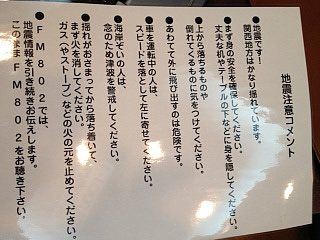 地震注意コメント
●地震です！
関西地方はかなり揺れています。
●まず身の安全を確保してください。
丈夫な机やテーブルの下などに身を隠してください。
●上から落ちるものや
倒れてくるものに気をつけてください。
●あわてて外に飛び出すのは危険です。
●車を運転中の人は、
スピードを落として左に寄せてください。
●海岸ぞいの人は、
念のため津波を警戒してください。
●揺れがおさまってから落ち着いて、
まず火を消してください。
ガス（やストーブ）などの火の元を止めてください。
●FM802では、
地震情報を引き続きお伝えします。
このままFM802をお聴き下さい。